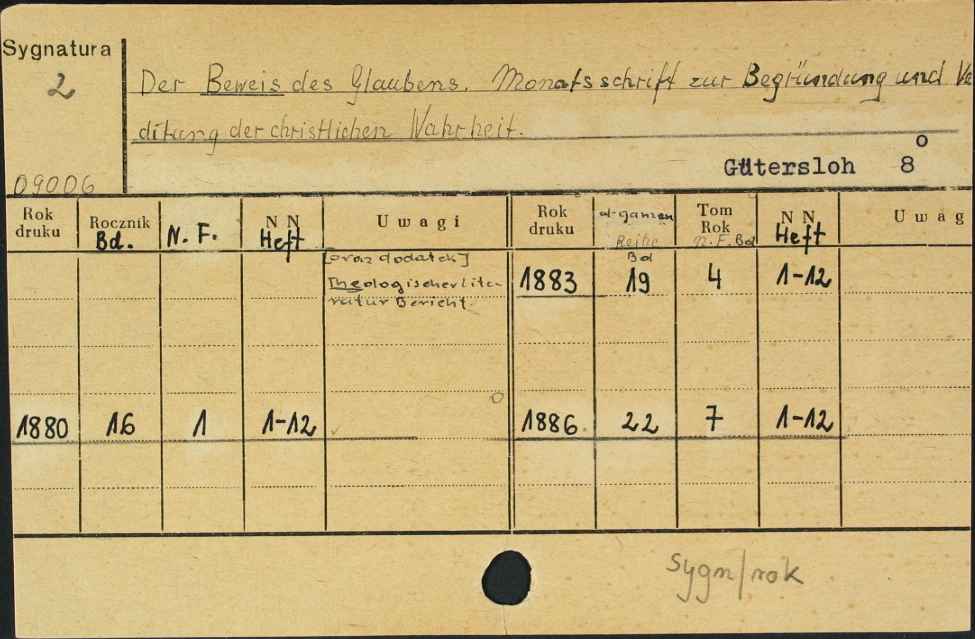 Sygnatura
2
Der Beweis des Glaubens. Monatsschrift zur Begründung und Ve
ditung der christlichen Wahrheit.
Gütersloh 8o
09006
Rok druku Rocznik Bd. N. F. N N Heft Uwagi Rok druku d. ganzen Reihe Bd Tom Rok N.F. Bd N N Heft Uwag
[oraz dodatek]
Theologischer Lite- 1883 19 4 1-12
ratur Bericht.
1880 16 1 1-12 1886. 22 7 1-12
Sygn/rok